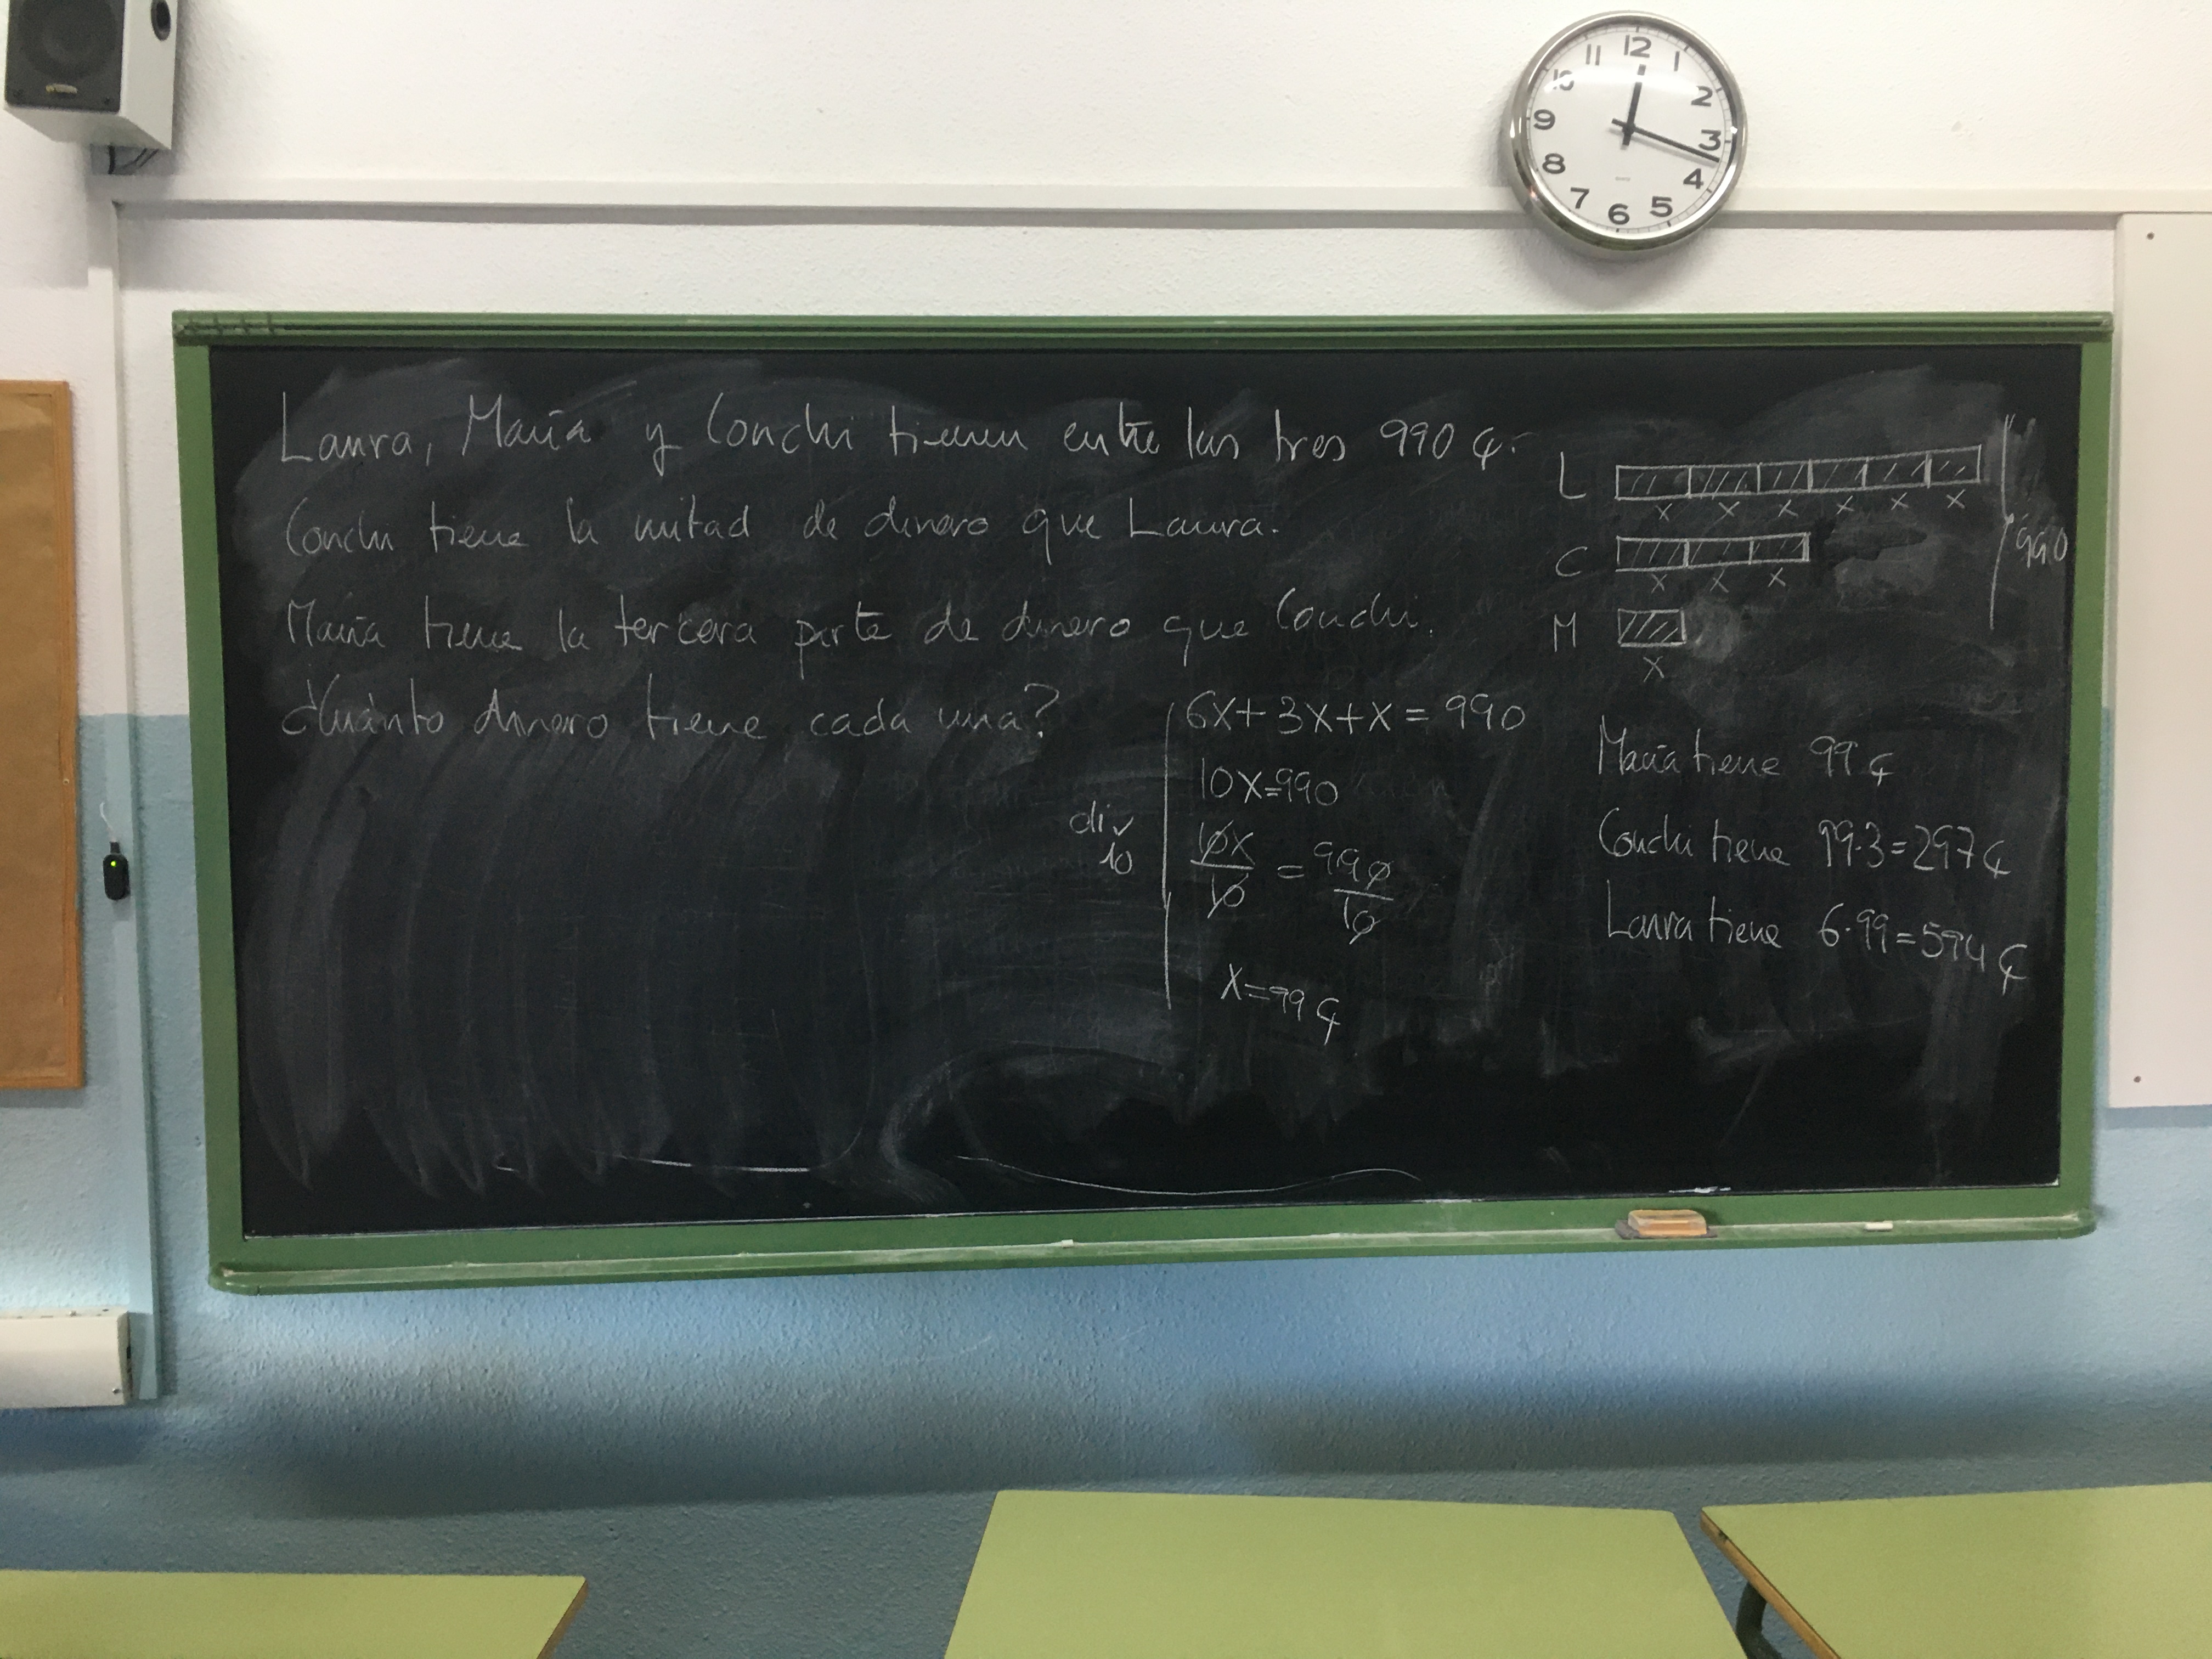 Laura, María y Conchi tienen entre las tres 990 €.
Conchi tiene la mitad de dinero que Laura.
María tiene la tercera parte de dinero que Conchi.
¿Cuánto dinero tiene cada una?
L
x x x x x x
C
x x x
M
x
990
6x+3x+x=990
10x=990
div
10
10x/10 = 990/10
x=99 €
María tiene 99 €
Conchi tiene 99·3=297 €
Laura tiene 6·99=594 €
12
1
2
3
4
5
6
7
8
9
10
11